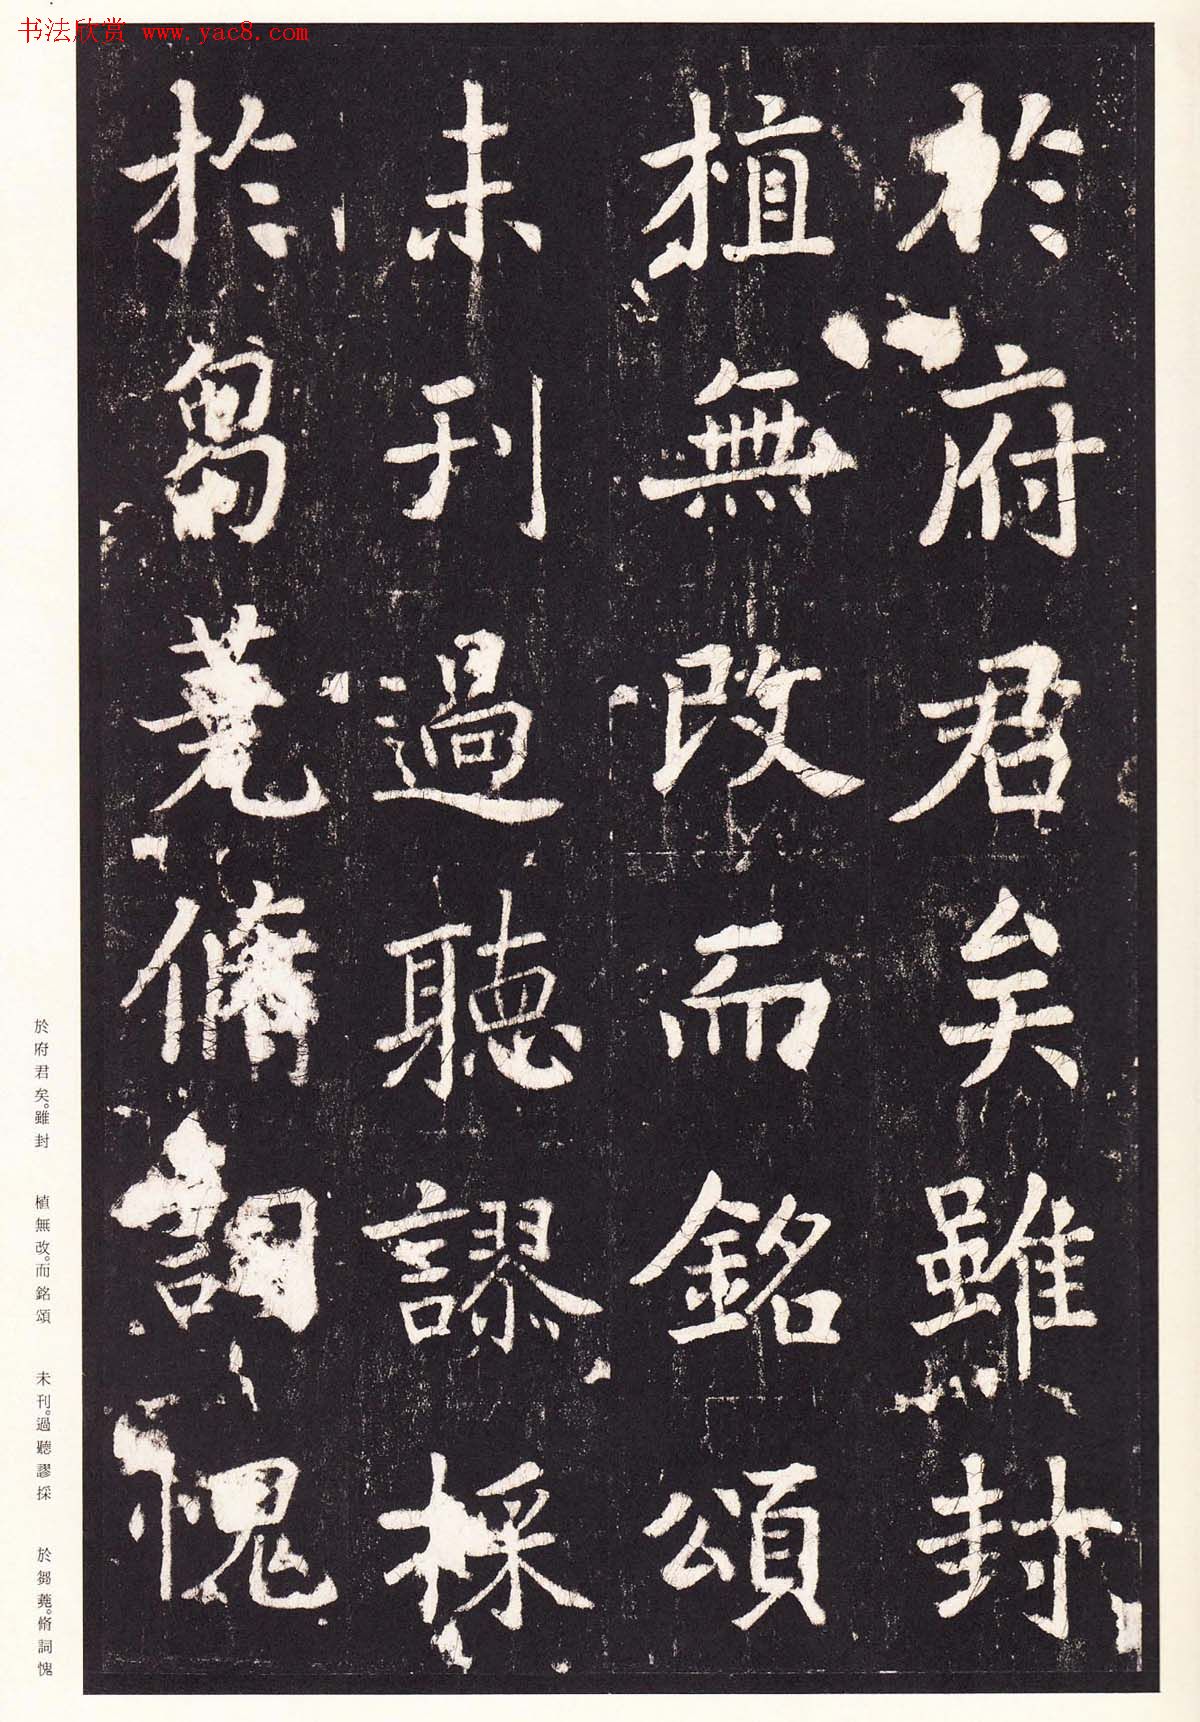 书法欣赏 www.yac8.com
於府君矣雖封
植無改而銘頌
未刊過聽謬採
於芻蕘脩詞愧
於府君矣。雖封 植無改。而銘頌 未刊。過聽謬採 於芻蕘。脩詞愧